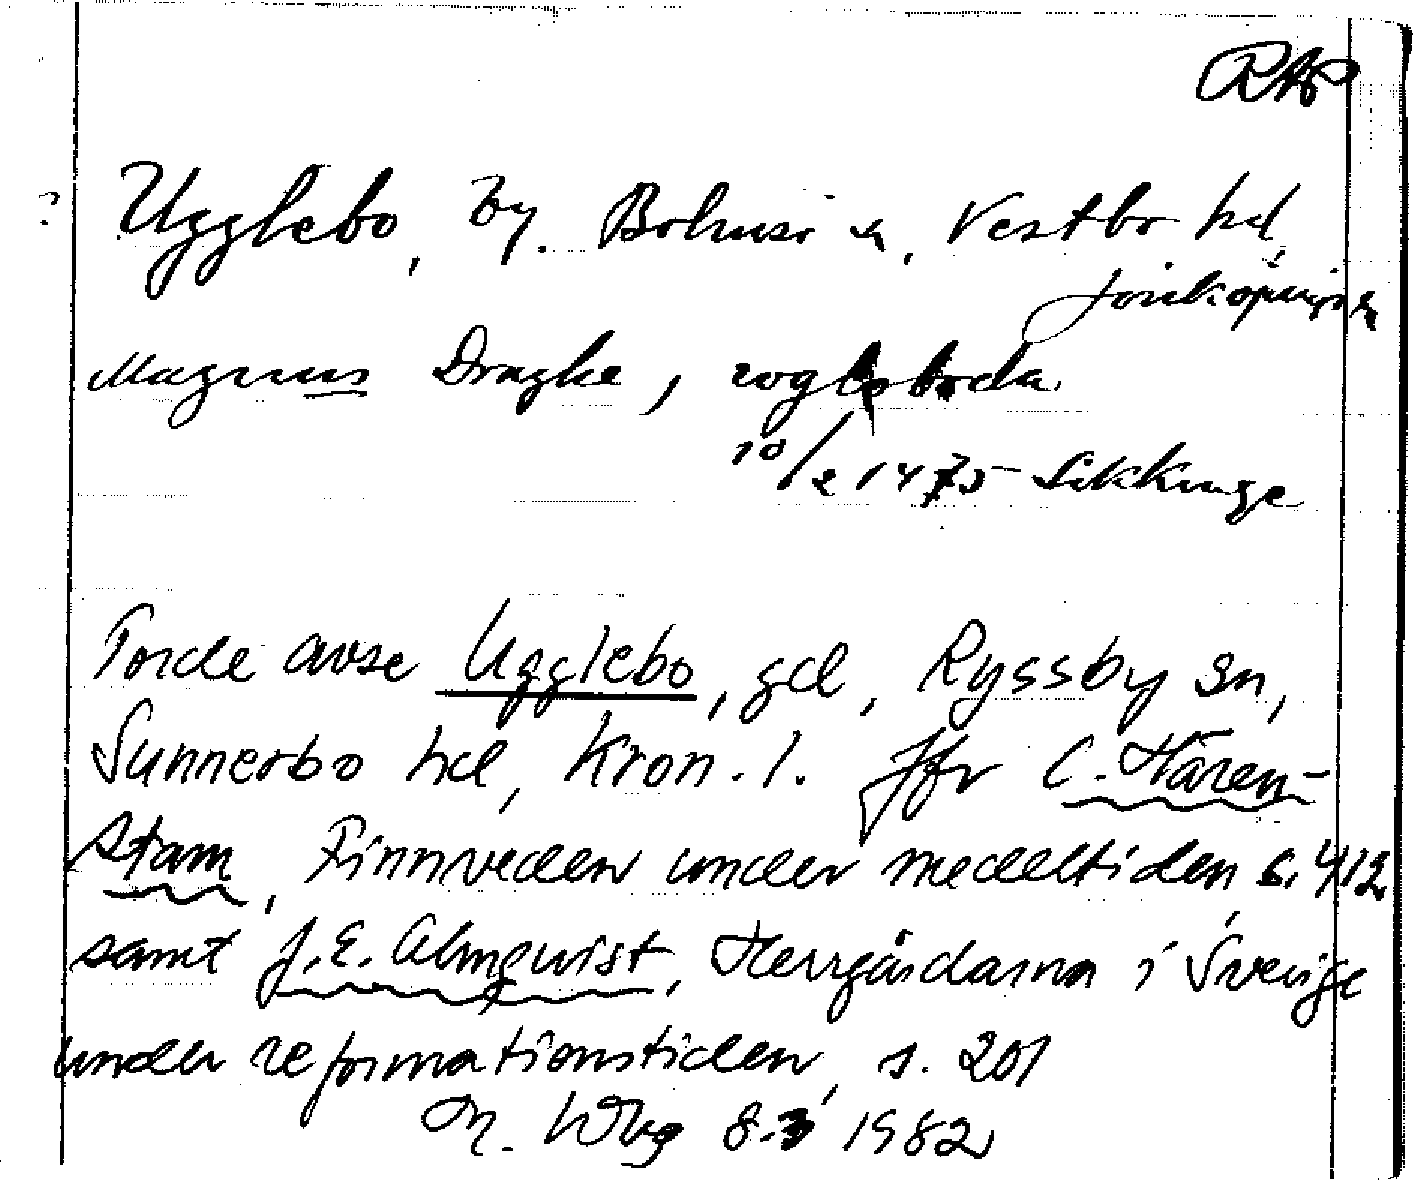 RAP
? Ugglebo, by. Bolmsö sn, Vestbo hd,
Jönköpings ln
Magnus Dragke, wgleboda
10/2 1475 Sikkinge
Torde avse Ugglebo, gd, Ryssby sn,
Sunnerbo hd, Kron. l. Jfr C. Hären-
stam, Finnveden under medeltiden s. 412
samt J.E. Almquist, Herrgårdarna i Sverige
under reformationstiden, s. 201
M. Wbg 8.3 1982